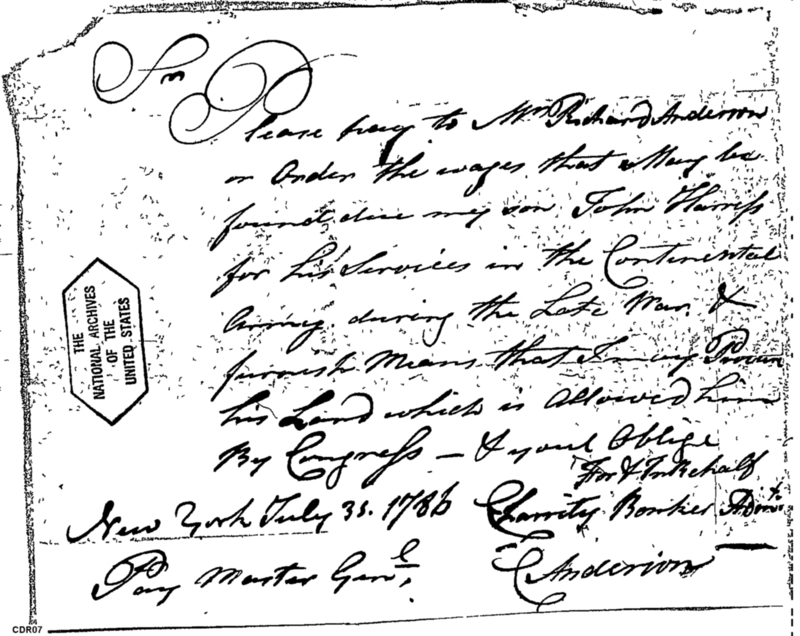 Sir
Please pay to Mr. Richard Anderson
or Order the wages that May be
found due my son John Harriss
for his Services in the Continental
Army during the Late War. &
furnish Means that I may Procure
his Land which is allowed him
By Congress — & youl Oblige
For & In Behalf
New York July 31. 1786 Charrity Bonker Admx.
Pay Master Genl. C Anderson
THE
NATIONAL ARCHIVES
OF THE
UNITED STATES
CDR07